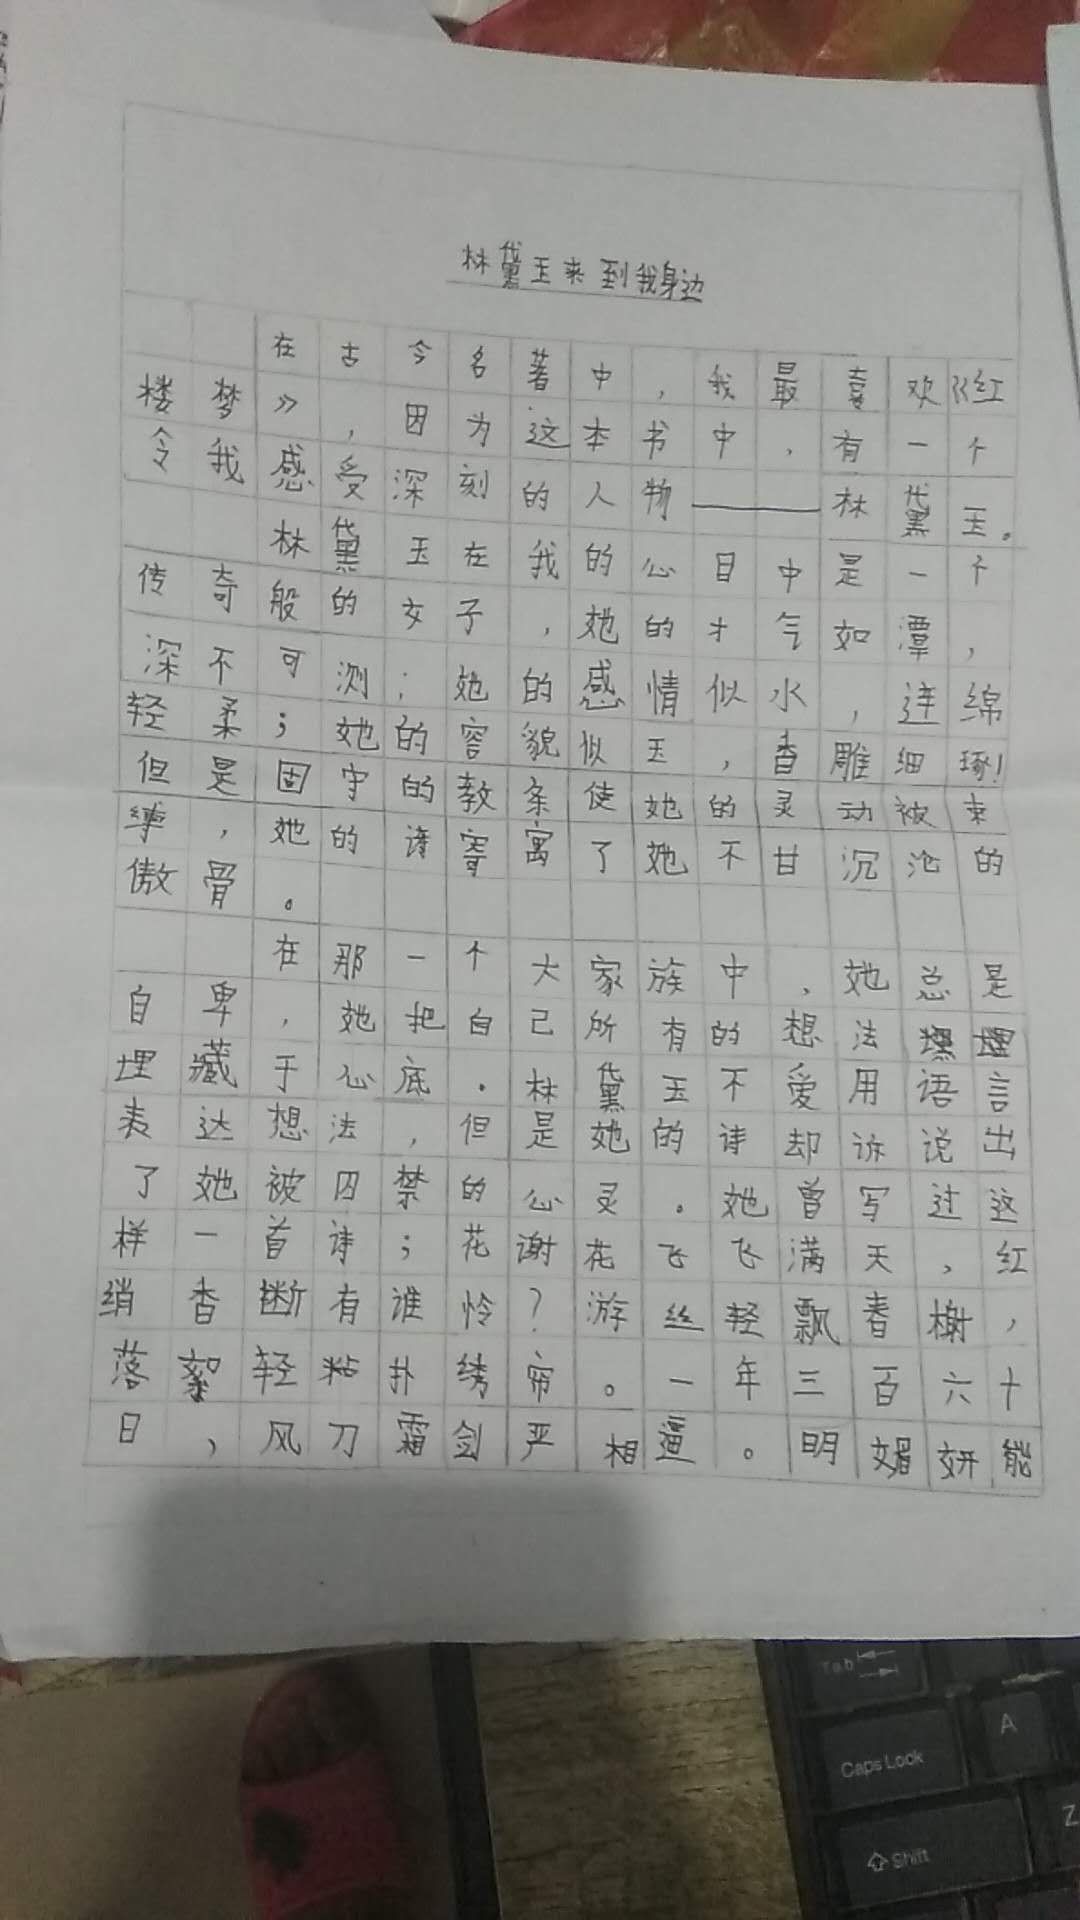 林黛玉来到我身边
在古今名著中，我最喜欢《红
楼梦》，因为这本书中，有一个
令我感受深刻的人物——林黛玉。
林黛玉在我的心目中是一个
传奇般的女子，她的才气如潭，
深不可测；她的感情似水，连绵
轻柔；她的容貌似玉，香雕细琢！
但是固守的教条使她的灵动被束
缚，她的诗寄寓了她不甘沉沦的
傲骨。
在那一个大家族中，她总是
自卑，她把自己所有的想法
埋藏于心底。林黛玉不爱用语言
表达想法，但是她的诗却诉说出
了她被囚禁的心灵。她曾写过这
样一首诗；花谢花飞飞满天，红
绡香断有谁怜？游丝轻飘春榭，
落絮轻粘扑绣帘。一年三百六十
日，风刀霜剑严相逼。明媚妍能
Tab
Caps Lock
A
Shift
Z